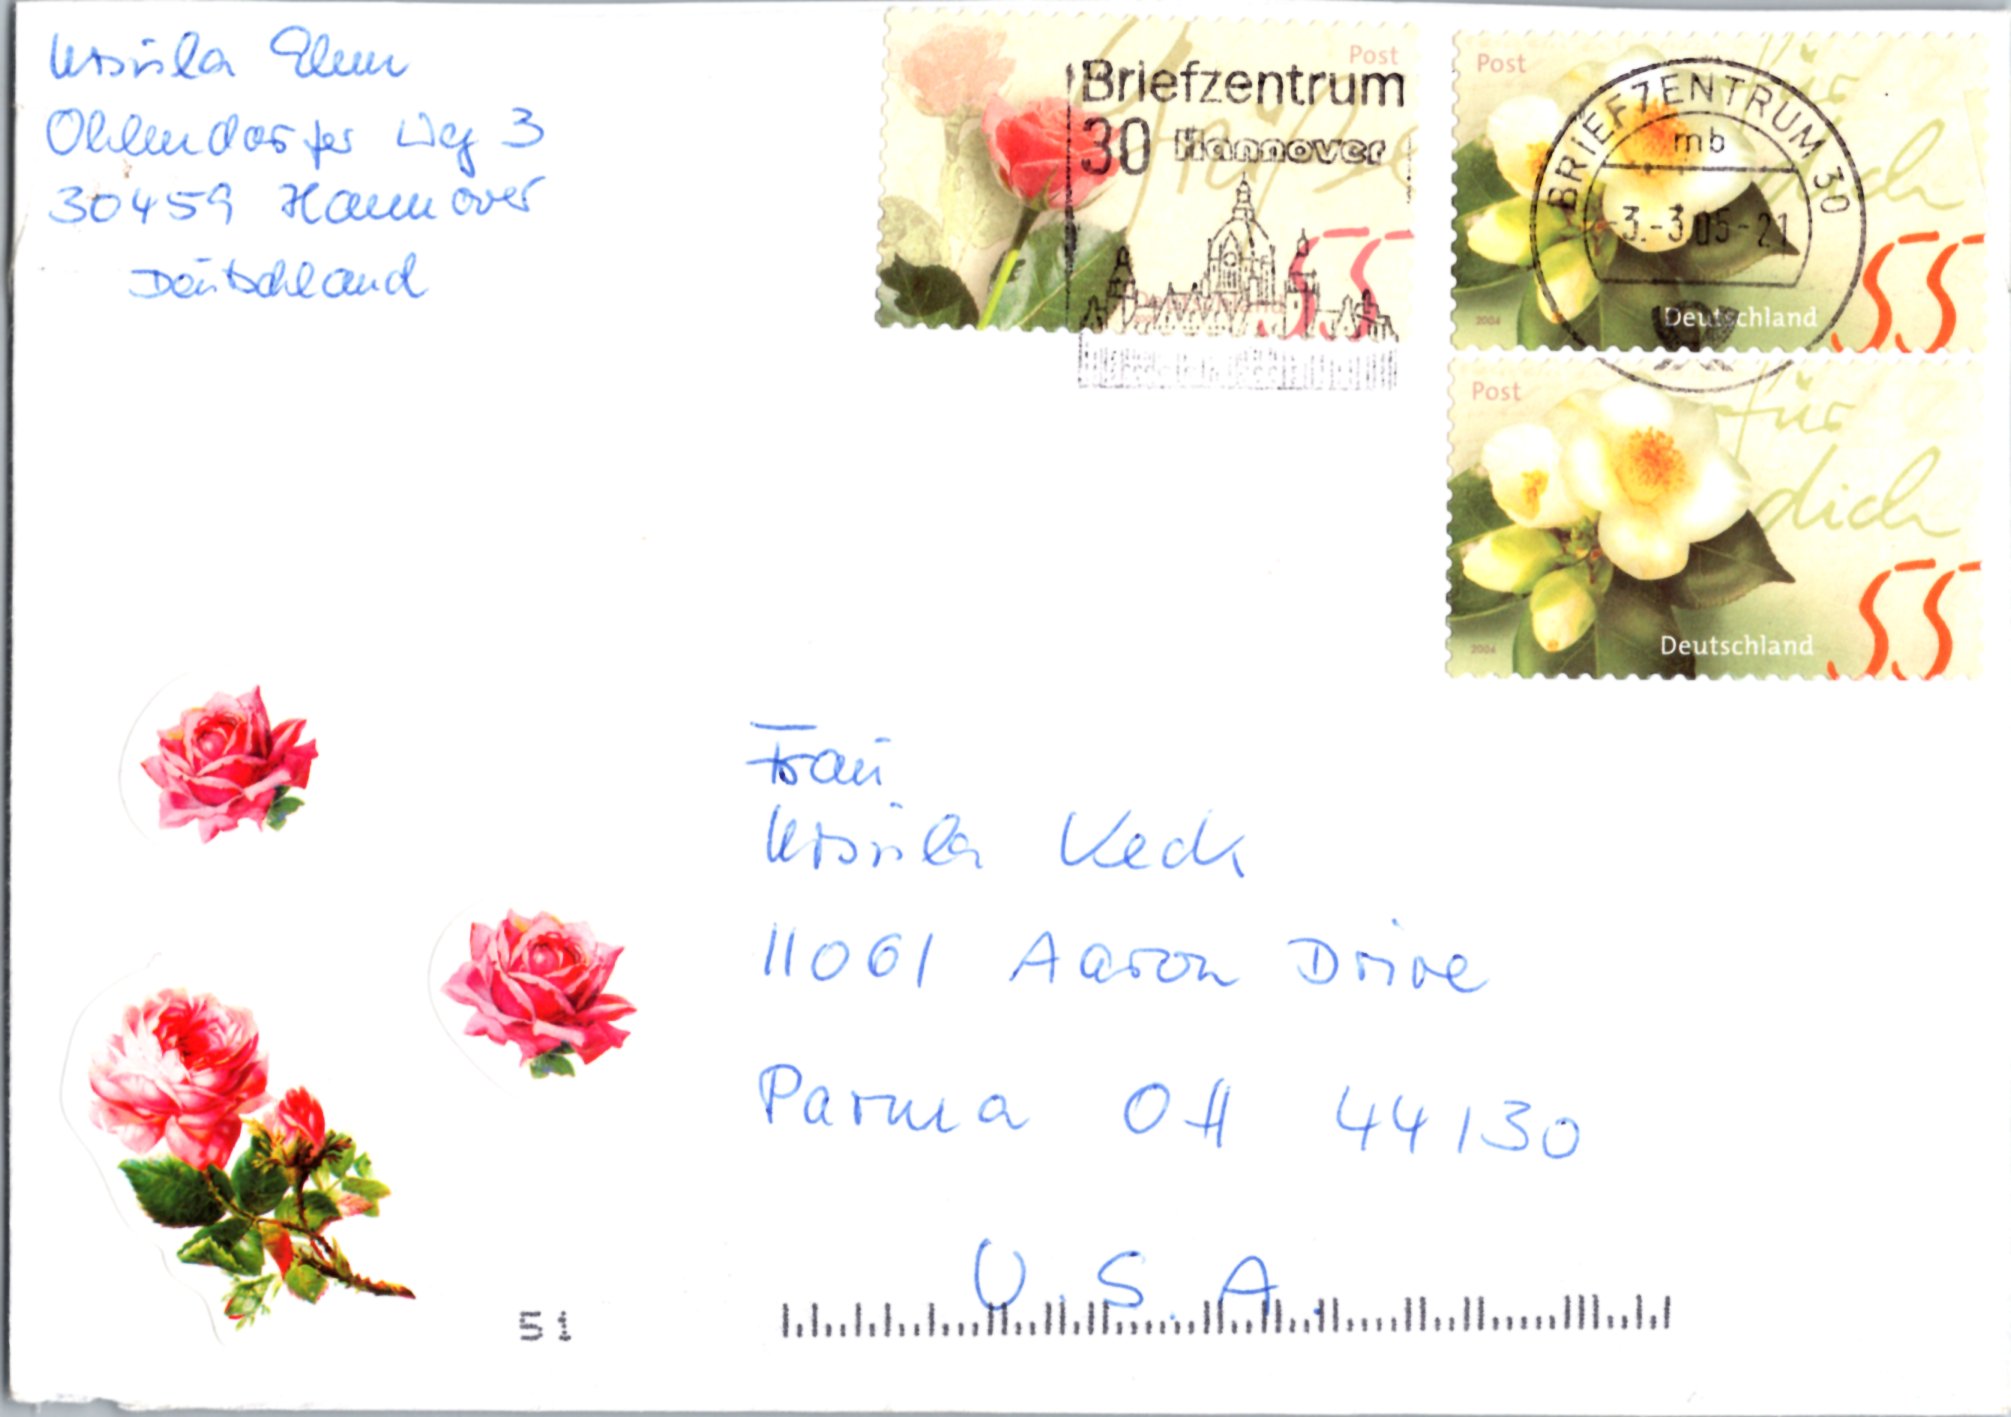 Ursula Elem
Ohlendorfer Weg 3
30459 Hannover
Deutschland
Post
Grüße
55
Briefzentrum
30 Hannover
Post
für
dich
55
2004
Deutschland
BRIEFZENTRUM 30
mb
-3.-3.05-21
Post
für
dich
55
2004
Deutschland
Frau
Ursula Keck
11061 Aaron Drive
Parma OH 44130
U.S.A.
51